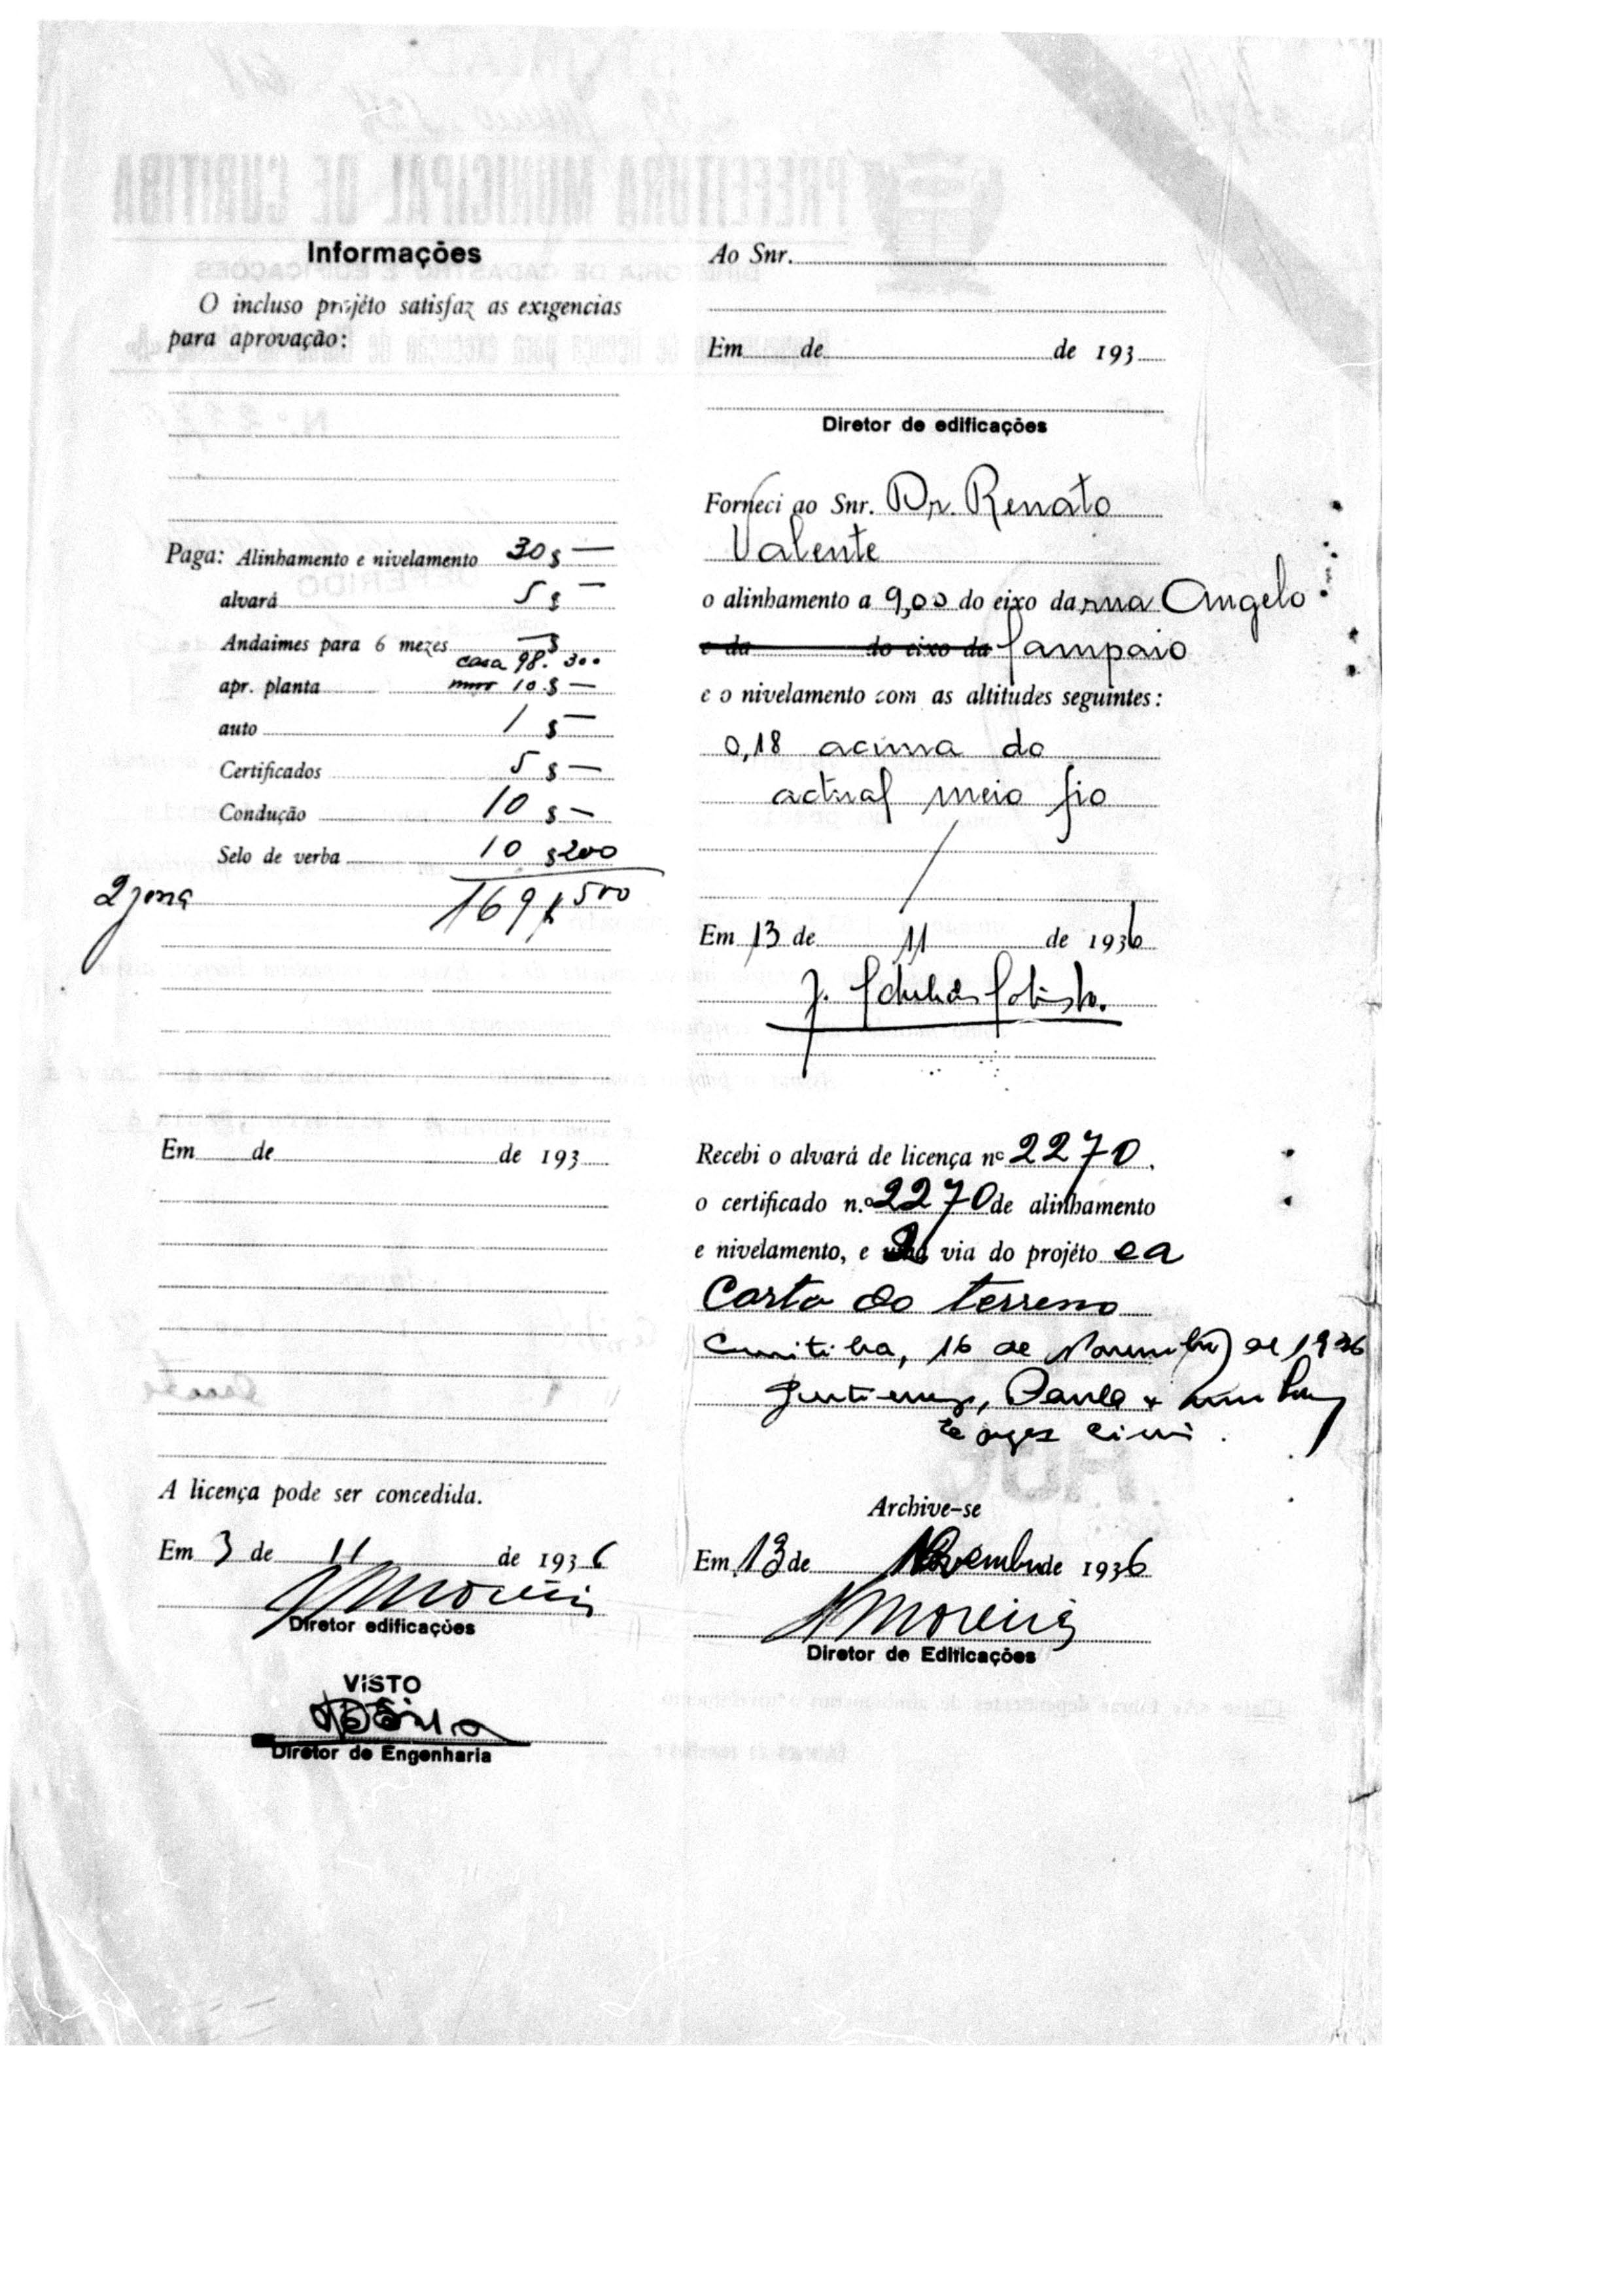 Informações
O incluso projéto satisfaz as exigencias
para aprovação:
Paga: Alinhamento e nivelamento 30$ —
alvará 5$ —
Andaimes para 6 mezes —$
casa 98. 300
apr. planta muro 10.$ —
auto 1$ —
Certificados 5$ —
Condução 10$ —
Selo de verba 10$200
2 zona 169$500
Em de de 193
A licença pode ser concedida.
Em 3 de 11 de 1936
Moreira
Diretor edificações
VISTO
Diretor de Engenharia
Ao Snr.
Em de de 193
Diretor de edificações
Forneci ao Snr. Dr. Renato
Valente
o alinhamento a 9,00 do eixo da rua Angelo
e da do eixo da Sampaio
e o nivelamento com as altitudes seguintes:
0,18 acima do
actual meio fio
Em 13 de 11 de 1936
Recebi o alvará de licença nº 2270.
o certificado n.º 2270 de alinhamento
e nivelamento, e 2 via do projéto e a
Carta do terreno
Curitiba, 16 de Novembro de 1936
Archive-se
Em 13 de Novembro de 1936
Moreira
Diretor de Edificações
PREFEITURA MUNICIPAL DE CURITIBA
DIRETORIA DE CADASTRO E EDIFICAÇÕES